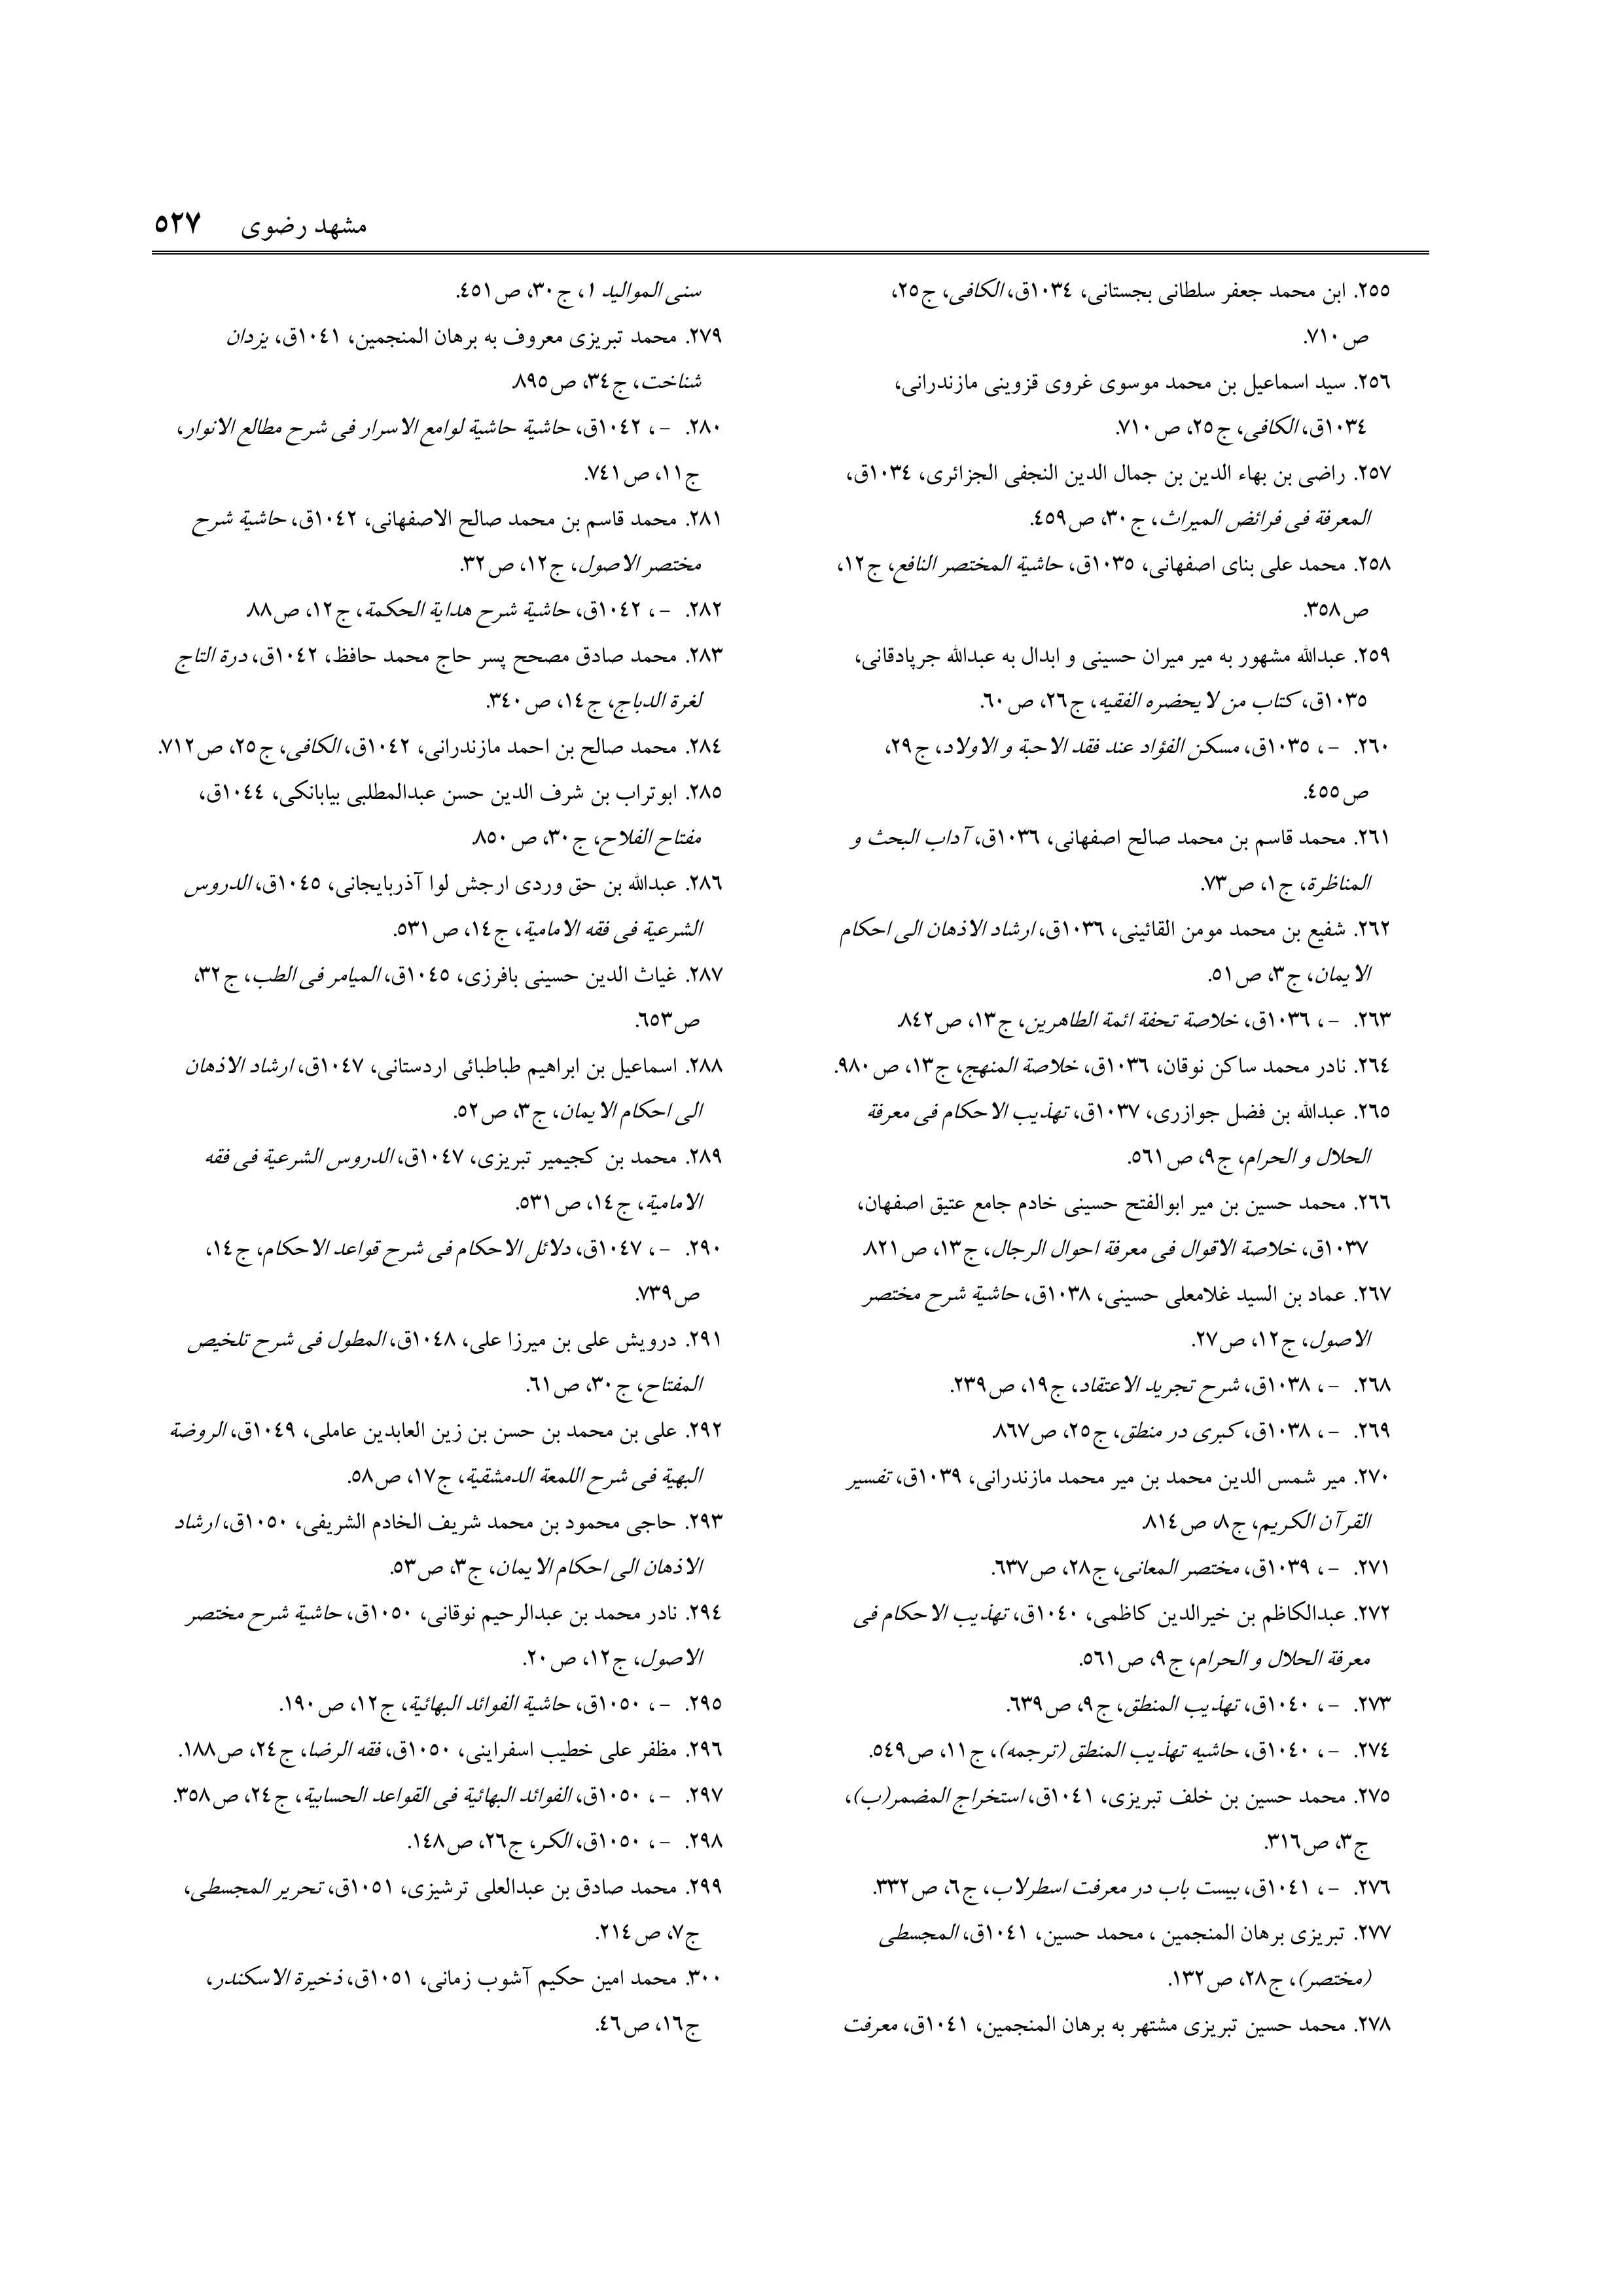 مشهد رضوی ٥٢٧
٢٥٥. ابن محمد جعفر سلطانی بجستانی، ١٠٣٤ق، الکافی، ج٢٥،
ص٧١٠.
٢٥٦. سید اسماعیل بن محمد موسوی غروی قزوینی مازندرانی،
١٠٣٤ق، الکافی، ج٢٥، ص٧١٠.
٢٥٧. راضی بن بهاء الدین بن جمال الدین النجفی الجزائری، ١٠٣٤ق،
المعرفة فی فرائض المیراث، ج٣٠، ص٤٥٩.
٢٥٨. محمد علی بنای اصفهانی، ١٠٣٥ق، حاشیة المختصر النافع، ج١٢،
ص٣٥٨.
٢٥٩. عبدالله مشهور به میر میران حسینی و ابدال به عبدالله جرپادقانی،
١٠٣٥ق، کتاب من لا یحضره الفقیه، ج٢٦، ص٦٠.
٢٦٠. -، ١٠٣٥ق، مسکن الفؤاد عند فقد الاحبة و الاولاد، ج٢٩،
ص٤٥٥.
٢٦١. محمد قاسم بن محمد صالح اصفهانی، ١٠٣٦ق، آداب البحث و
المناظرة، ج١، ص٧٣.
٢٦٢. شفیع بن محمد مومن القائینی، ١٠٣٦ق، ارشاد الاذهان الی احکام
الایمان، ج٣، ص٥١.
٢٦٣. -، ١٠٣٦ق، خلاصة تحفة ائمة الطاهرین، ج١٣، ص٨٤٢.
٢٦٤. نادر محمد ساکن نوقان، ١٠٣٦ق، خلاصة المنهج، ج١٣، ص٩٨٠.
٢٦٥. عبدالله بن فضل جوازری، ١٠٣٧ق، تهذیب الاحکام فی معرفة
الحلال و الحرام، ج٩، ص٥٦١.
٢٦٦. محمد حسین بن میر ابوالفتح حسینی خادم جامع عتیق اصفهان،
١٠٣٧ق، خلاصة الاقوال فی معرفة احوال الرجال، ج١٣، ص٨٢١.
٢٦٧. عماد بن السید غلامعلی حسینی، ١٠٣٨ق، حاشیة شرح مختصر
الاصول، ج١٢، ص٢٧.
٢٦٨. -، ١٠٣٨ق، شرح تجرید الاعتقاد، ج١٩، ص٢٣٩.
٢٦٩. -، ١٠٣٨ق، کبری در منطق، ج٢٥، ص٨٦٧.
٢٧٠. میر شمس الدین محمد بن میر محمد مازندرانی، ١٠٣٩ق، تفسیر
القرآن الکریم، ج٨، ص٨١٤.
٢٧١. -، ١٠٣٩ق، مختصر المعانی، ج٢٨، ص٦٣٧.
٢٧٢. عبدالکاظم بن خیرالدین کاظمی، ١٠٤٠ق، تهذیب الاحکام فی
معرفة الحلال و الحرام، ج٩، ص٥٦١.
٢٧٣. -، ١٠٤٠ق، تهذیب المنطق، ج٩، ص٦٣٩.
٢٧٤. -، ١٠٤٠ق، حاشیه تهذیب المنطق (ترجمه)، ج١١، ص٥٤٩.
٢٧٥. محمد حسین بن خلف تبریزی، ١٠٤١ق، استخراج المضمر(ب)،
ج٣، ص٣١٦.
٢٧٦. -، ١٠٤١ق، بیست باب در معرفت اسطرلاب، ج٦، ص٣٣٢.
٢٧٧. تبریزی برهان المنجمین ، محمد حسین، ١٠٤١ق، المجسطی
(مختصر)، ج٢٨، ص١٣٢.
٢٧٨. محمد حسین تبریزی مشتهر به برهان المنجمین، ١٠٤١ق، معرفت
سنی الموالید ١، ج٣٠، ص٤٥١.
٢٧٩. محمد تبریزی معروف به برهان المنجمین، ١٠٤١ق، یزدان
شناخت، ج٣٤، ص٨٩٥.
٢٨٠. -، ١٠٤٢ق، حاشیة حاشیة لوامع الاسرار فی شرح مطالع الانوار،
ج١١، ص٧٤١.
٢٨١. محمد قاسم بن محمد صالح الاصفهانی، ١٠٤٢ق، حاشیة شرح
مختصر الاصول، ج١٢، ص٣٢.
٢٨٢. -، ١٠٤٢ق، حاشیة شرح هدایة الحکمة، ج١٢، ص٨٨.
٢٨٣. محمد صادق مصحح پسر حاج محمد حافظ، ١٠٤٢ق، درة التاج
لغرة الدباج، ج١٤، ص٣٤٠.
٢٨٤. محمد صالح بن احمد مازندرانی، ١٠٤٢ق، الکافی، ج٢٥، ص٧١٢.
٢٨٥. ابوتراب بن شرف الدین حسن عبدالمطلبی بیابانکی، ١٠٤٤ق،
مفتاح الفلاح، ج٣٠، ص٨٥٠.
٢٨٦. عبدالله بن حق وردی ارجش لوا آذربایجانی، ١٠٤٥ق، الدروس
الشرعیة فی فقه الامامیة، ج١٤، ص٥٣١.
٢٨٧. غیاث الدین حسینی بافرزی، ١٠٤٥ق، المیامر فی الطب، ج٣٢،
ص٦٥٣.
٢٨٨. اسماعیل بن ابراهیم طباطبائی اردستانی، ١٠٤٧ق، ارشاد الاذهان
الی احکام الایمان، ج٣، ص٥٢.
٢٨٩. محمد بن کجیمیر تبریزی، ١٠٤٧ق، الدروس الشرعیة فی فقه
الامامیة، ج١٤، ص٥٣١.
٢٩٠. -، ١٠٤٧ق، دلائل الاحکام فی شرح قواعد الاحکام، ج١٤،
ص٧٣٩.
٢٩١. درویش علی بن میرزا علی، ١٠٤٨ق، المطول فی شرح تلخیص
المفتاح، ج٣٠، ص٦١.
٢٩٢. علی بن محمد بن حسن بن زین العابدین عاملی، ١٠٤٩ق، الروضة
البهیة فی شرح اللمعة الدمشقیة، ج١٧، ص٥٨.
٢٩٣. حاجی محمود بن محمد شریف الخادم الشریفی، ١٠٥٠ق، ارشاد
الاذهان الی احکام الایمان، ج٣، ص٥٣.
٢٩٤. نادر محمد بن عبدالرحیم نوقانی، ١٠٥٠ق، حاشیة شرح مختصر
الاصول، ج١٢، ص٢٠.
٢٩٥. -، ١٠٥٠ق، حاشیة الفوائد البهائیة، ج١٢، ص١٩٠.
٢٩٦. مظفر علی خطیب اسفراینی، ١٠٥٠ق، فقه الرضا، ج٢٤، ص١٨٨.
٢٩٧. -، ١٠٥٠ق، الفوائد البهائیة فی القواعد الحسابیة، ج٢٤، ص٣٥٨.
٢٩٨. -، ١٠٥٠ق، الکر، ج٢٦، ص١٤٨.
٢٩٩. محمد صادق بن عبدالعلی ترشیزی، ١٠٥١ق، تحریر المجسطی،
ج٧، ص٢١٤.
٣٠٠. محمد امین حکیم آشوب زمانی، ١٠٥١ق، ذخیرة الاسکندر،
ج١٦، ص٤٦.